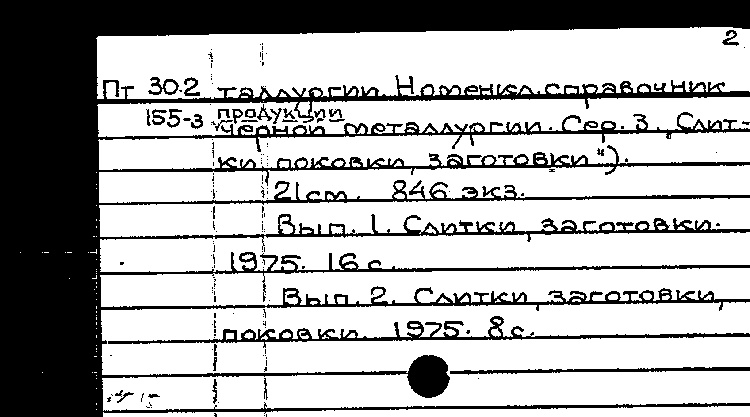 2
Пт 30.2 таллургии. Номенкл. справочник
155-3 продукции
черной металлургии. Сер. 3. „Слит-
ки, поковки, заготовки").
21 см. 846 экз.
Вып. 1. Слитки, заготовки.
1975. 16 с.
Вып. 2. Слитки, заготовки,
поковки. 1975. 8 с.